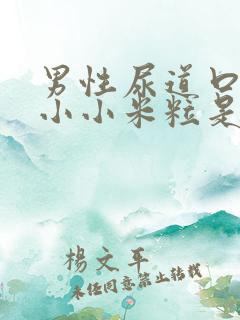 男性尿道口
小小米粒是
楊文平
未经同意禁止转载